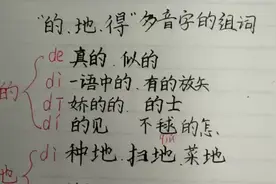 "的、地、得"多音字的组词
的 de 真的.似的
dì 一语中的.有的放矢
dī 娇的的. 的士
dí 的见 不毬的怎
qiú
地 dì 种地.扫地.菜地